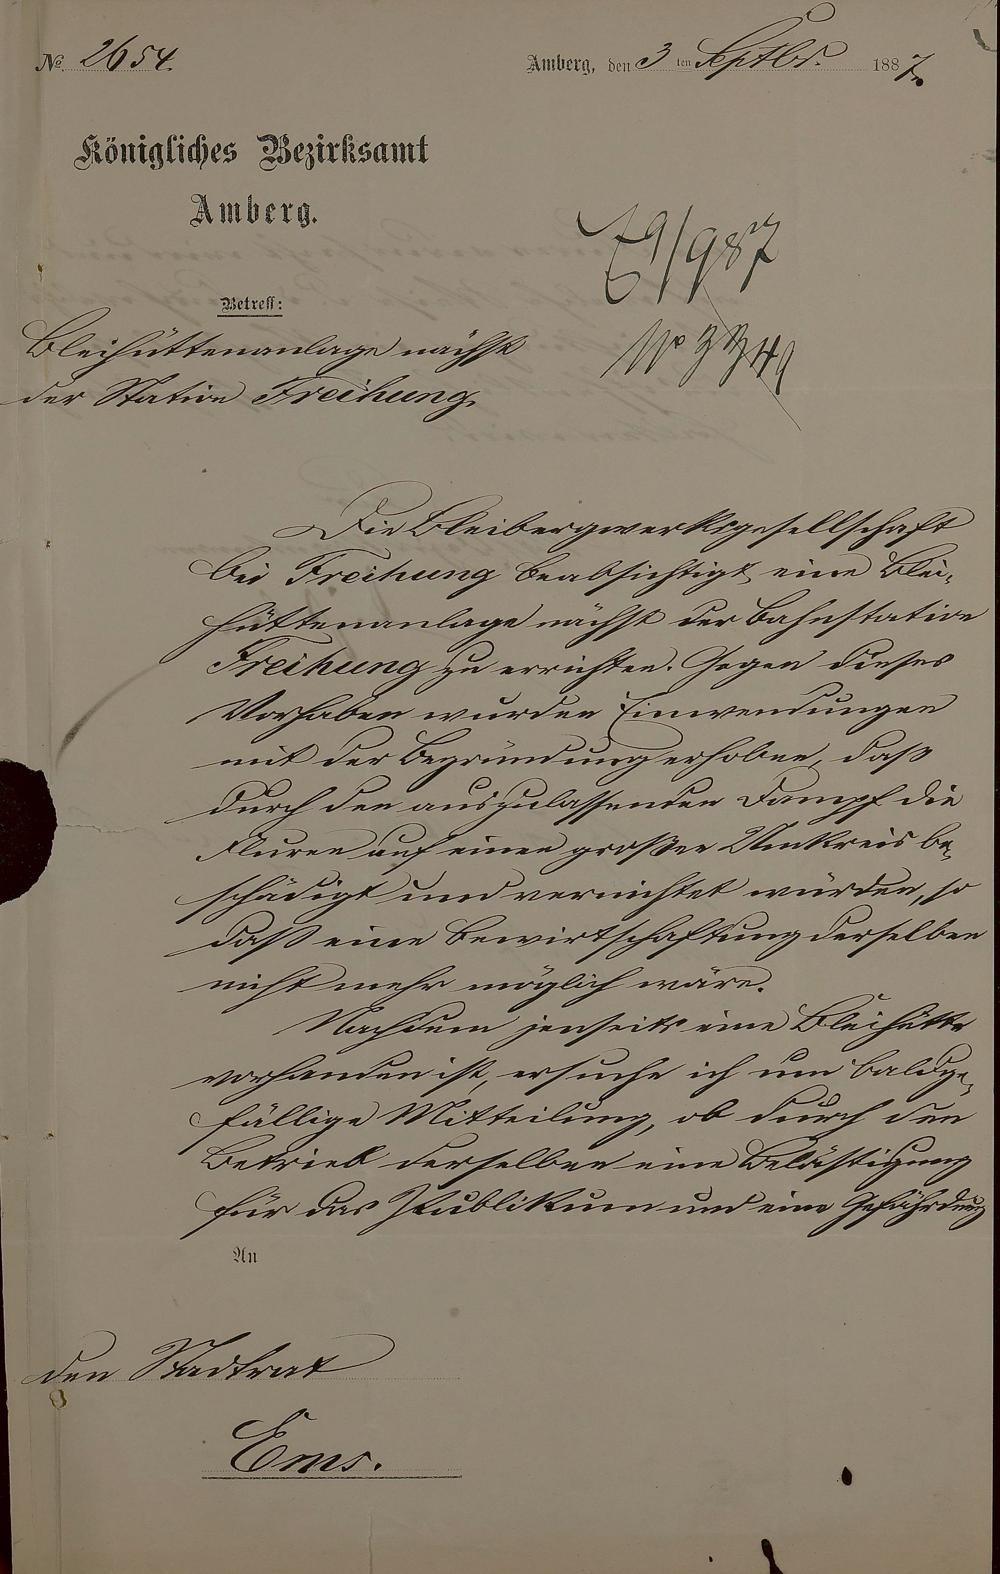 No. 2654.
Amberg, den 3ten Septbr. 1887.
Königliches Bezirksamt
Amberg.
E 9/9 87
No 3341
Betreff:
Bleihüttenanlage nächst
der Station Freihung.
Die Bleibergwerksgesellschaft
bei Freihung beabsichtigt eine Blei-
hüttenanlage nächst der Bahnstation
Freihung zu errichten. Gegen dieses
Vorhaben wurden Einwendungen
mit der Begründung erhoben, daß
durch den auszulassenden Dampf die
Fluren auf einen großen Umkreis be-
schädigt und vernichtet würden, so
daß eine Bewirtschaftung derselben
nicht mehr möglich wäre.
Nachdem jenseits eine Bleihütte
vorhanden ist, ersuche ich um baldge-
fällige Mitteilung, ob durch den
Betrieb derselben eine Belästigung
für das Publikum und eine Gefährdung
An
den Stadtrat
Ems.